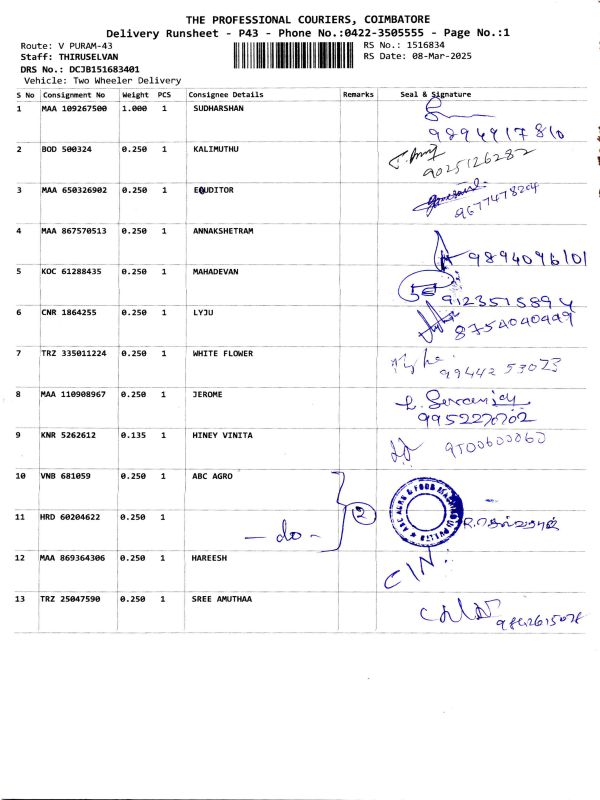 THE PROFESSIONAL COURIERS, COIMBATORE
Delivery Runsheet - P43 - Phone No.:0422-3505555 - Page No.:1
Route: V PURAM-43
RS No.: 1516834
Staff: THIRUSELVAN
RS Date: 08-Mar-2025
DRS No.: DCJB151683401
Vehicle: Two Wheeler Delivery
S No Consignment No Weight PCS Consignee Details Remarks Seal & Signature
1 MAA 109267500 1.000 1 SUDHARSHAN
9894917810
2 BOD 500324 0.250 1 KALIMUTHU
9025126282
3 MAA 650326902 0.250 1 EQUDITOR
9677478204
4 MAA 867570513 0.250 1 ANNAKSHETRAM
9894096101
5 KOC 61288435 0.250 1 MAHADEVAN
9123515894
6 CNR 1864255 0.250 1 LYJU
8754040499
7 TRZ 335011224 0.250 1 WHITE FLOWER
99442 53023
8 MAA 110908967 0.250 1 JEROME
9952270702
9 KNR 5262612 0.135 1 HINEY VINITA
9500600060
10 VNB 681059 0.250 1 ABC AGRO
2
11 HRD 60204622 0.250 1 - do -
12 MAA 869364306 0.250 1 HAREESH
13 TRZ 25047590 0.250 1 SREE AMUTHAA
9842615078